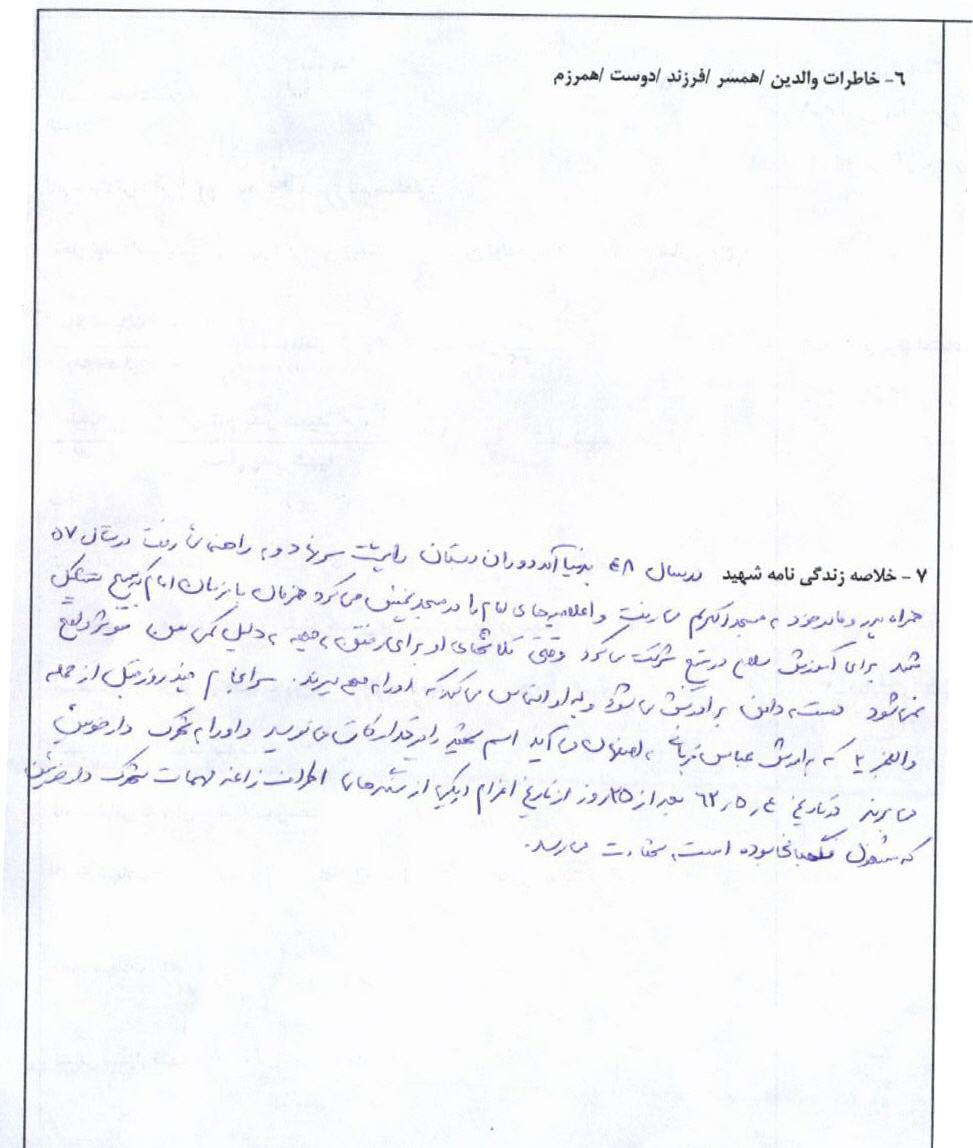 ۶- خاطرات والدین /همسر /فرزند /دوست /همرزم
۷ - خلاصه زندگی نامه شهید درسال ۴۸ بدنیا آمد دوران دبستان را پشت سر نهاد و به راهنمائی رفت در سال ۵۷
همراه پدر و مادر خود به مسجد اکبریم می رفت و اعلامیه های امام را در مسجد پخش می کرد همزمان با فرمان امام که بسیج تشکیل
شد برای آموزش سلاح در بسیج شرکت می کرد وقتی تلاشهای او برای رفتن به جبهه به دلیل کمی سن موثر واقع
نمی شود دست به دامن برادرش می شود و به او التماس می کند که او را به جبهه ببرند. سرانجام چند روز قبل از حمله
والفجر ۲ که برادرش عباس قربانی به اصفهان می آید اسم شهید را در تدارکات می نویسد و او را به تحرک دارخوین
می برند در تاریخ ۶۲٫۵٫۴ بعد از ۲۵ روز از تاریخ اعزام در یکی از سنگرهای اطراف زاغه مهمات شهرک دارخوین
که مشغول نگهبانی بوده است به شهادت می رسد.